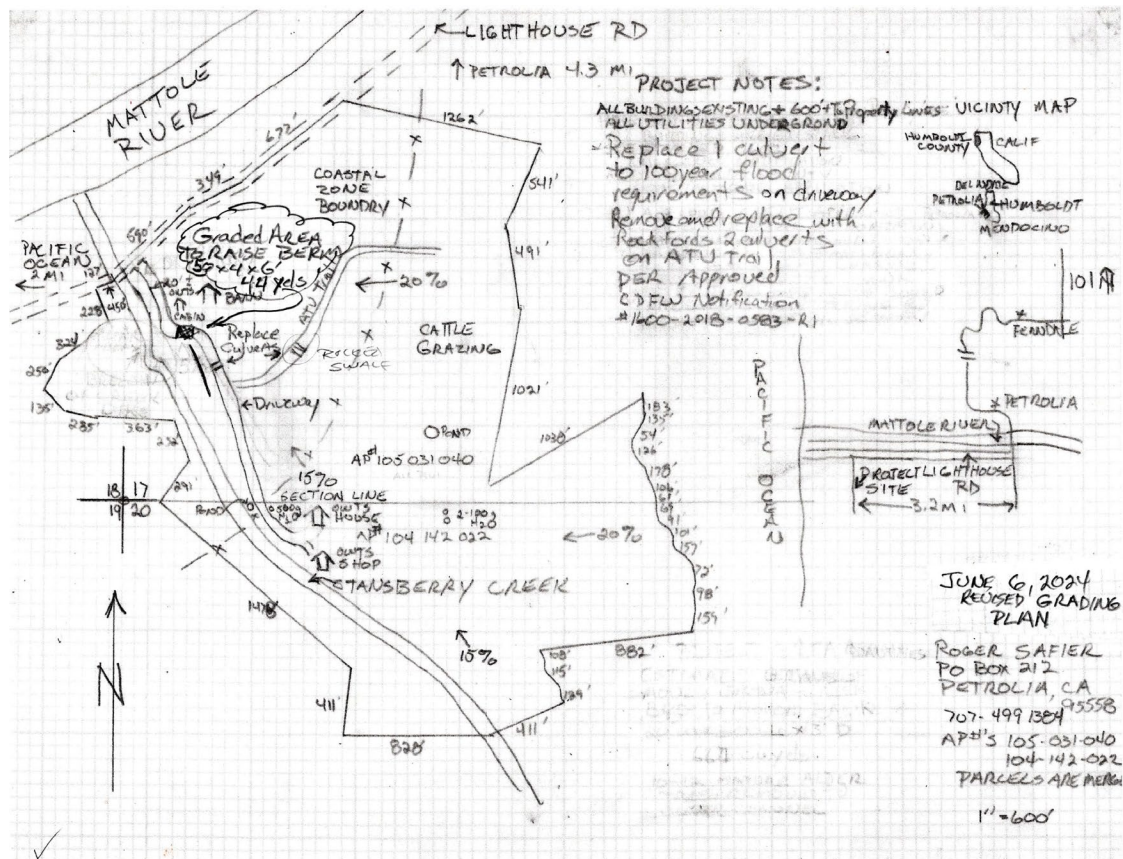 LIGHTHOUSE RD
↑ PETROLIA 4.3 MI
MATTOLE
RIVER
PROJECT NOTES:
ALL BUILDINGS EXISTING + 600'+ To Property Lines
ALL UTILITIES UNDERGROND
- Replace 1 culvert
to 100 year flood
requirements on driveway
Remove and replace with
Rockfords 2 culverts
on ATV Trail,
DER Approved
CDFW Notification
#1600-2018-0583-R1
VICINTY MAP
HUMBOLDT
COUNTY
CALIF
PETROLIA
HUMBOLDT
MENDOCINO
101
FERNDALE
PETROLIA
MATTOLE RIVER
PROJECT
SITE
LIGHTHOUSE
RD
3.2 MI
PACIFIC OCEAN
1262'
541'
491'
1021'
1038'
672'
349'
590'
127'
COASTAL
ZONE
BOUNDARY
Graded AREA
TO RAISE BERM
59x4x6'
44 yds
PACIFIC
OCEAN
2 MI
OWTS
BARN
CABIN
ATV Trail
20%
228'
450'
324'
250'
135'
285'
363'
232'
291'
Replace
Culverts
ROCKED
SWALE
CATTLE
GRAZING
DRIVEWAY
POND
AP# 105 031 040
15%
SECTION LINE
18 17
19 20
POND
H2O
OWTS
HOUSE
H2O
AP#
104 142 022
OWTS
SHOP
20%
STANSBERRY CREEK
183'
135'
54'
126'
178'
157'
72'
98'
159'
882'
108'
115'
139'
411'
828'
411'
15%
N
JUNE 6, 2024
REVISED GRADING
PLAN
ROGER SAFIER
PO BOX 212
PETROLIA, CA
95558
707-499 1384
AP#'S 105-031-040
104-142-022
PARCELS ARE MERGE
1" = 600'